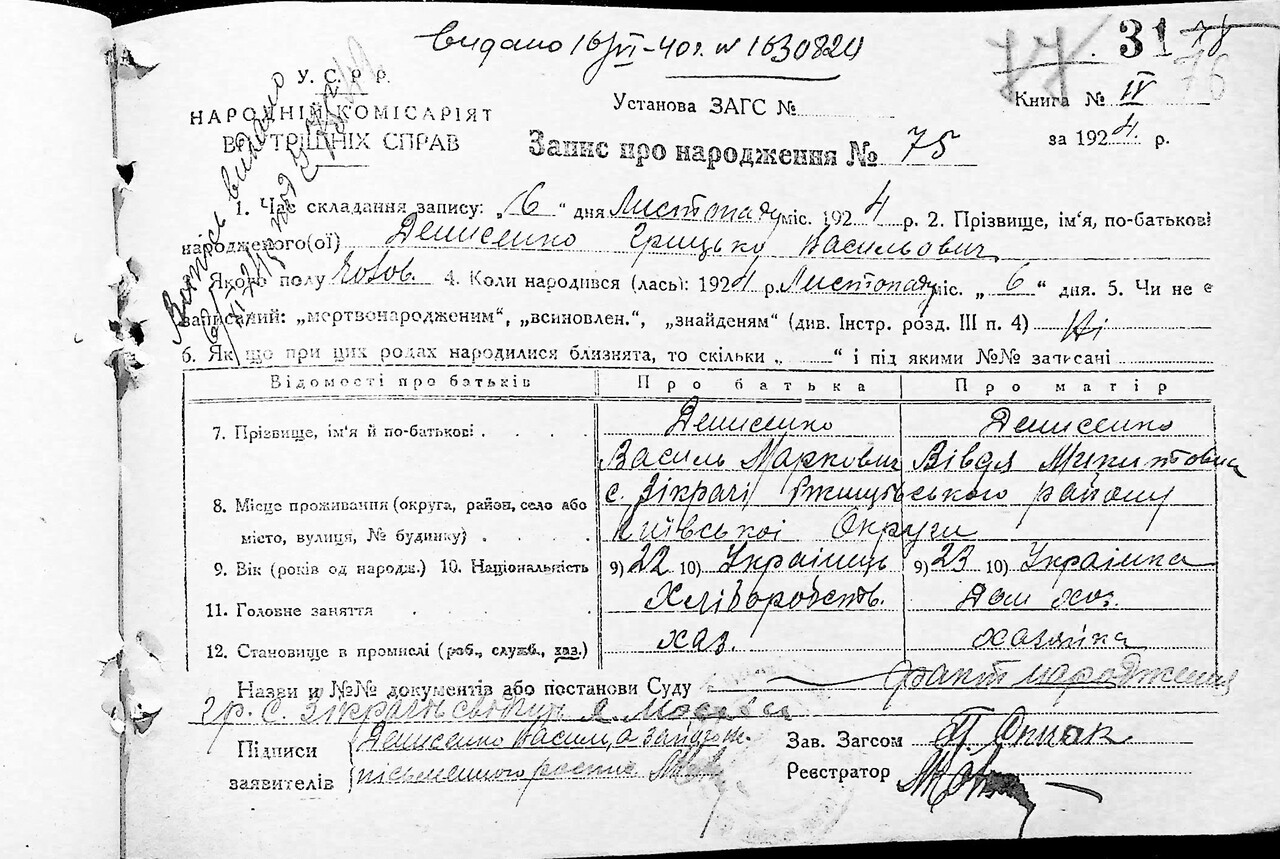 видано 16/VI-40 г. № 1630820
77. 31 78
76
У. С. Р. Р.
НАРОДНІЙ КОМІСАРІЯТ
ВНУТРІШНІХ СПРАВ
Установа ЗАГС №
Книга № IV
за 1924 р.
Запис про народження № 75
Витрясь видано
1. Час складання запису: „16“ дня Листопаду міс. 1924 р. 2. Прізвище, ім'я, по-батькові
народженого(ої) Денисенко Грицько Васильович
Якого полу Чолов. 4. Коли народився (лась): 1924 р. Листопаду міс. „6“ дня. 5. Чи не є
записаний: „мертвонародженим“, „всиновлен.“, „знайденям“ (див. Інстр. розд. III п. 4) Ні
6. Якщо при цих родах народилися близнята, то скільки „ “ і під якими №№ записані
Відомості про батьків Про батька Про матір
7. Прізвище, ім'я й по-батькові Денисенко Денисенко
Василь Маркович Вівдя Микитовна
8. Місце проживання (округа, район, село або с. Зікрачі Ржищівського району
місто, вулиця, № будинку) Київської Округи
9. Вік (років од народж.) 10. Національність 9) 22 10) Українць 9) 23 10) Українка
11. Головне заняття Хліборобств. Дом хоз.
12. Становище в промислі (роб., служб., хаз.) хаз. хазяйка
Назви и №№ документів або постанови Суду факт народження
гр. с. Зікрачі
Підписи Денисенко Васил, а за
заявителів письменного
Зав. Загсом
Реєстратор